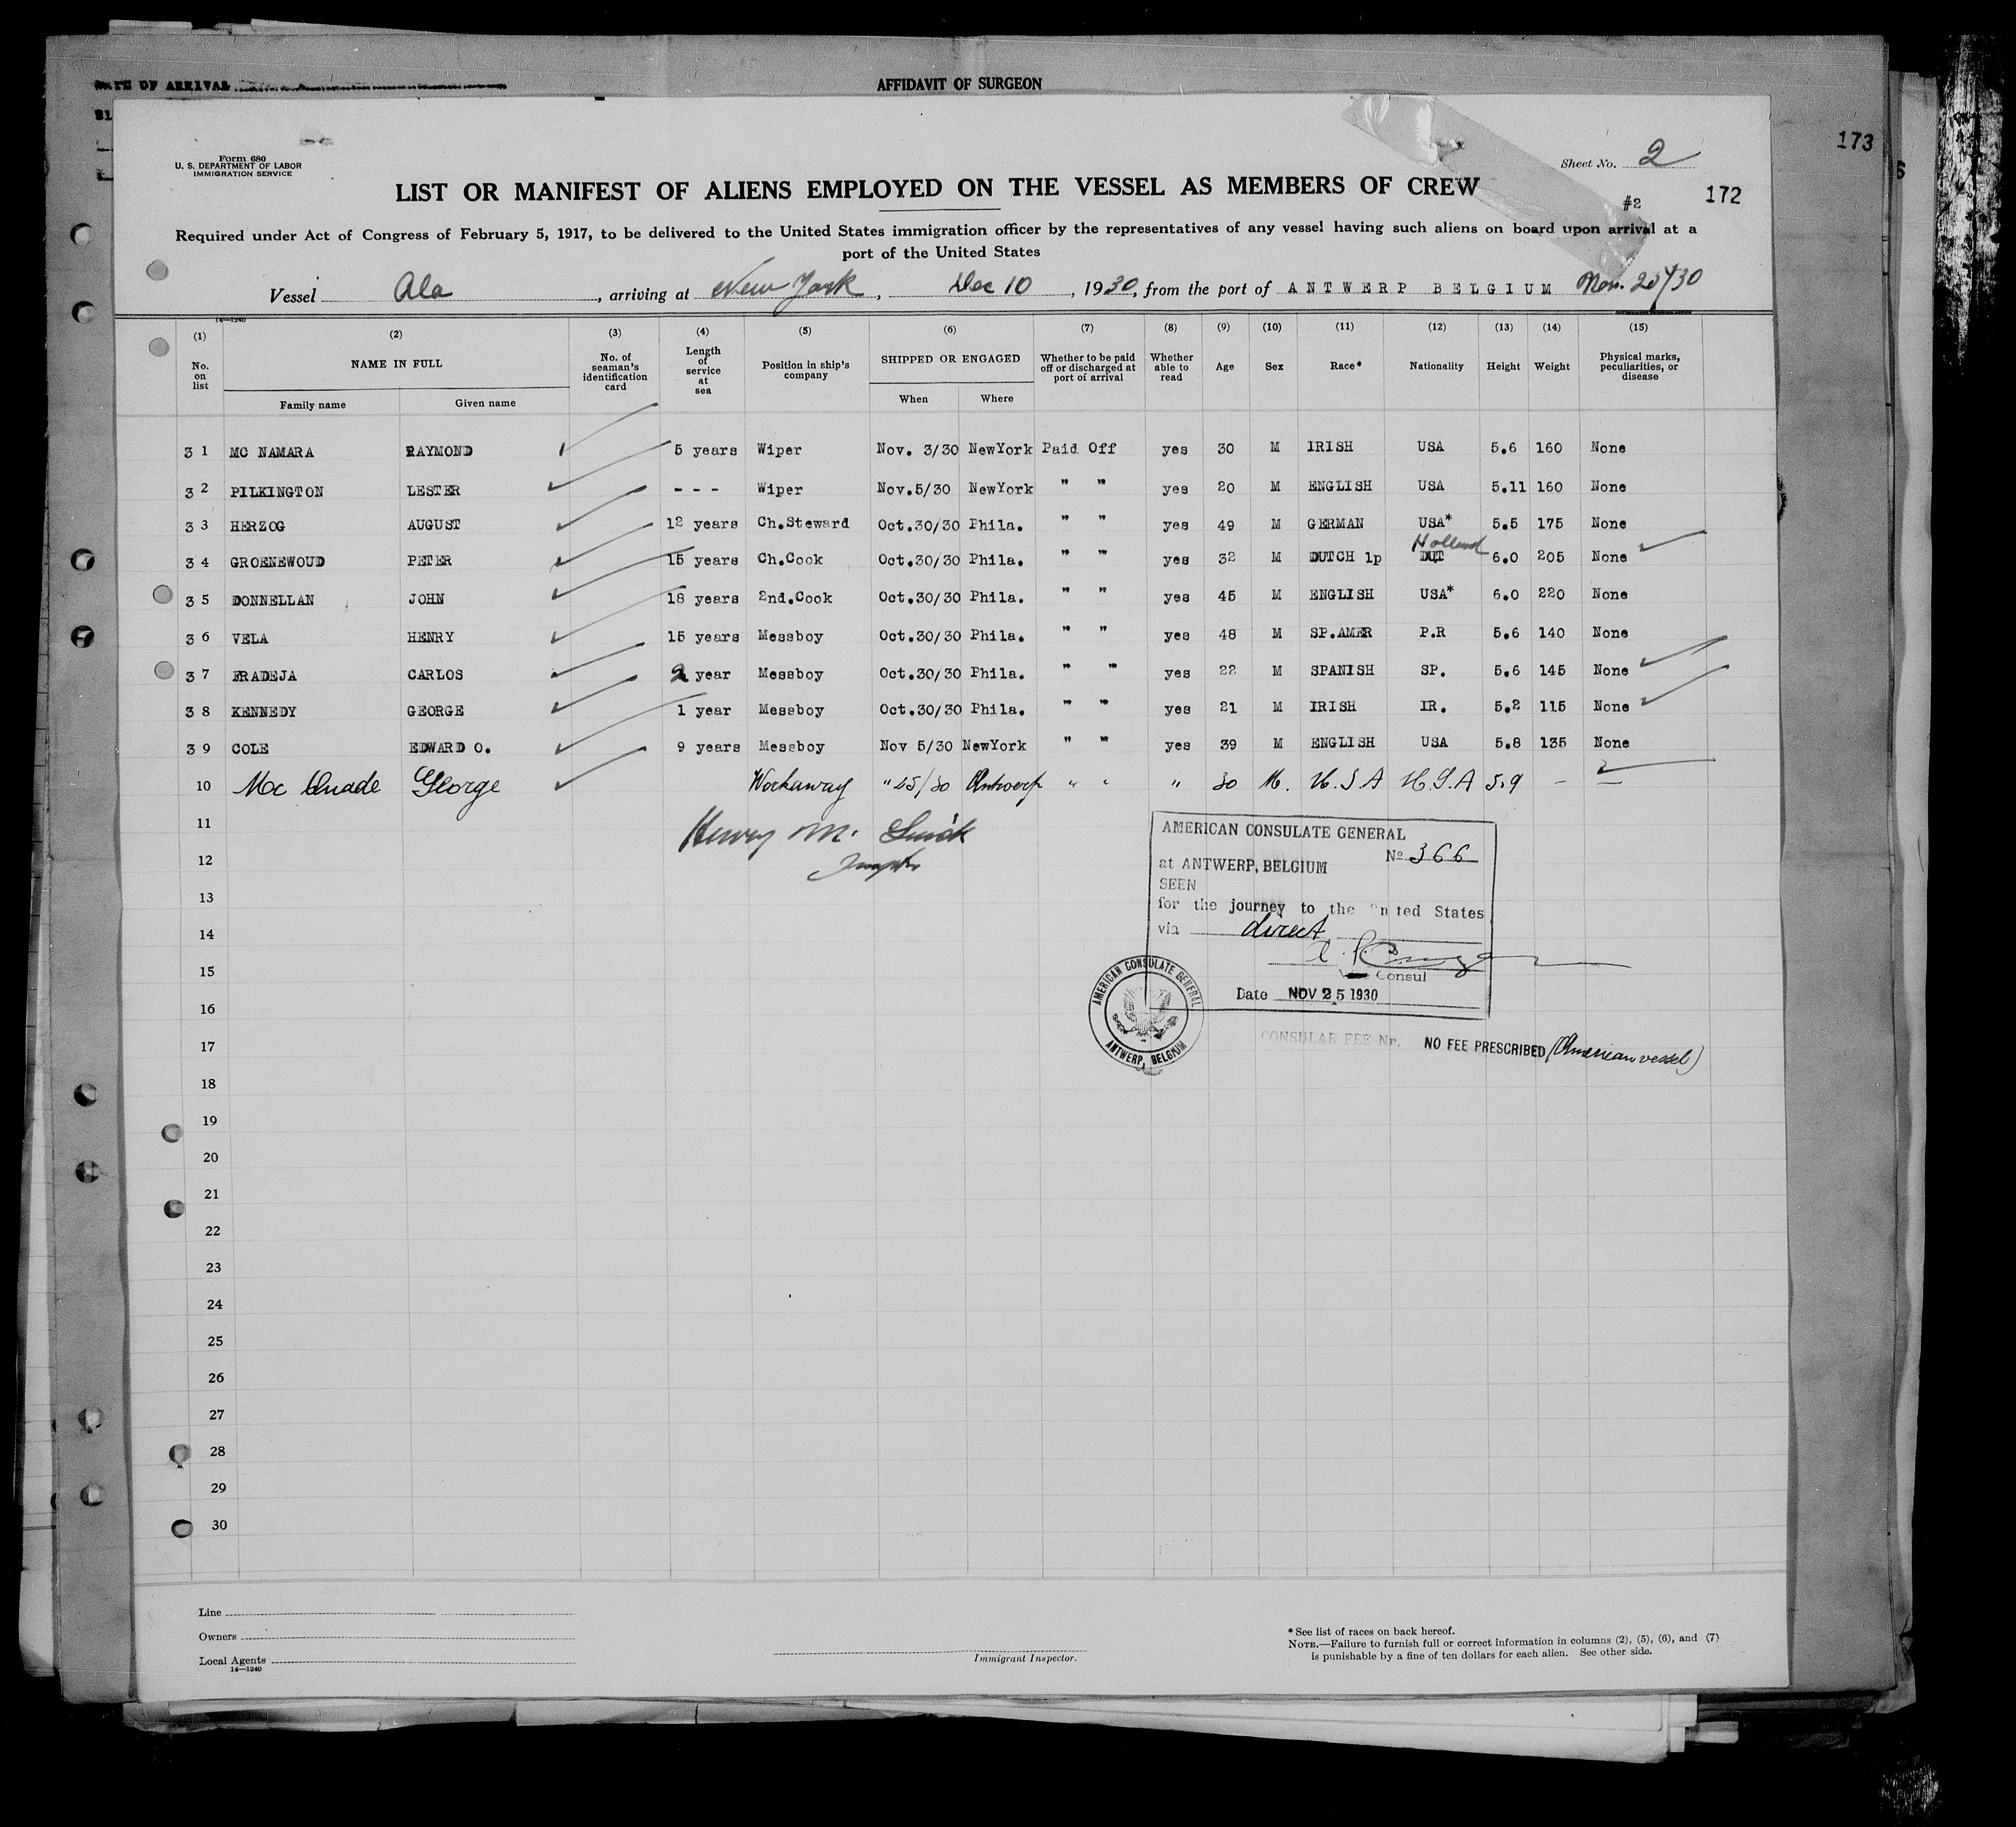 DATE OF ARRIVAL
AFFIDAVIT OF SURGEON
173
Form 680
U. S. DEPARTMENT OF LABOR
IMMIGRATION SERVICE
Sheet No. 2
LIST OR MANIFEST OF ALIENS EMPLOYED ON THE VESSEL AS MEMBERS OF CREW
#2
172
Required under Act of Congress of February 5, 1917, to be delivered to the United States immigration officer by the representatives of any vessel having such aliens on board upon arrival at a
port of the United States
Vessel Ala, arriving at New York, Dec 10, 1930, from the port of ANTWERP BELGIUM Nov. 25/30
14—1240
(1) (2) (3) (4) (5) (6) (7) (8) (9) (10) (11) (12) (13) (14) (15)
No. on list NAME IN FULL Family name Given name No. of seaman's identification card Length of service at sea Position in ship's company SHIPPED OR ENGAGED When Where Whether to be paid off or discharged at port of arrival Whether able to read Age Sex Race* Nationality Height Weight Physical marks, peculiarities, or disease
3 1 MC NAMARA RAYMOND 5 years Wiper Nov. 3/30 NewYork Paid Off yes 30 M IRISH USA 5.6 160 None
3 2 PILKINGTON LESTER - - - Wiper Nov.5/30 NewYork " " yes 20 M ENGLISH USA 5.11 160 None
3 3 HERZOG AUGUST 12 years Ch.Steward Oct.30/30 Phila. " " yes 49 M GERMAN USA* 5.5 175 None
3 4 GROENEWOUD PETER 15 years Ch.Cook Oct.30/30 Phila. " " yes 32 M DUTCH 1p DUT Holland 6.0 205 None
3 5 DONNELLAN JOHN 18 years 2nd.Cook Oct.30/30 Phila. " " yes 45 M ENGLISH USA* 6.0 220 None
3 6 VELA HENRY 15 years Messboy Oct.30/30 Phila. " " yes 48 M SP.AMER P.R 5.6 140 None
3 7 FRADEJA CARLOS 2 year Messboy Oct.30/30 Phila. " " yes 22 M SPANISH SP. 5.6 145 None
3 8 KENNEDY GEORGE 1 year Messboy Oct.30/30 Phila. " " yes 21 M IRISH IR. 5.2 115 None
3 9 COLE EDWARD O. 9 years Messboy Nov 5/30 NewYork " " yes 39 M ENGLISH USA 5.8 135 None
10 Mc Quade George Workaway " 25/30 Antwerp " " " 30 M. U.S.A U.S.A 5.9 — —
11 Henry M.
12
13
14
15
16
17
18
19
20
21
22
23
24
25
26
27
28
29
30
AMERICAN CONSULATE GENERAL
No 366
at ANTWERP, BELGIUM
SEEN
for the journey to the United States
via direct
Consul
Date NOV 25 1930
AMERICAN CONSULATE GENERAL
ANTWERP, BELGIUM
CONSULAR FEE Nr. NO FEE PRESCRIBED (American vessel)
Line
Owners
Local Agents
14—1240
Immigrant Inspector.
* See list of races on back hereof.
NOTE.—Failure to furnish full or correct information in columns (2), (5), (6), and (7)
is punishable by a fine of ten dollars for each alien. See other side.